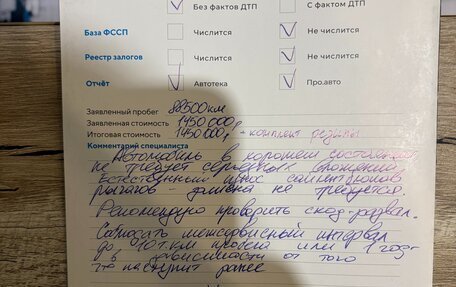 Без фактов ДТП С фактом ДТП
База ФССП Числится Не числится
Реестр залогов Числится Не числится
Отчёт Автотека Про.авто
Заявленный пробег 88500км
Заявленная стоимость 1450 000р
Итоговая стоимость 1450 000р + комплект резины
Комментарий специалиста
Автомобиль в хорошем состоянии
не требует серьезных вложений
Естественный износ сайлентблоков
рычагов замена не требуется.
Рекомендую проверить сход-развал.
Соблюдать межсервисный интервал
до 10т.км пробега или 1 год
в зависимости от того
что наступит ранее